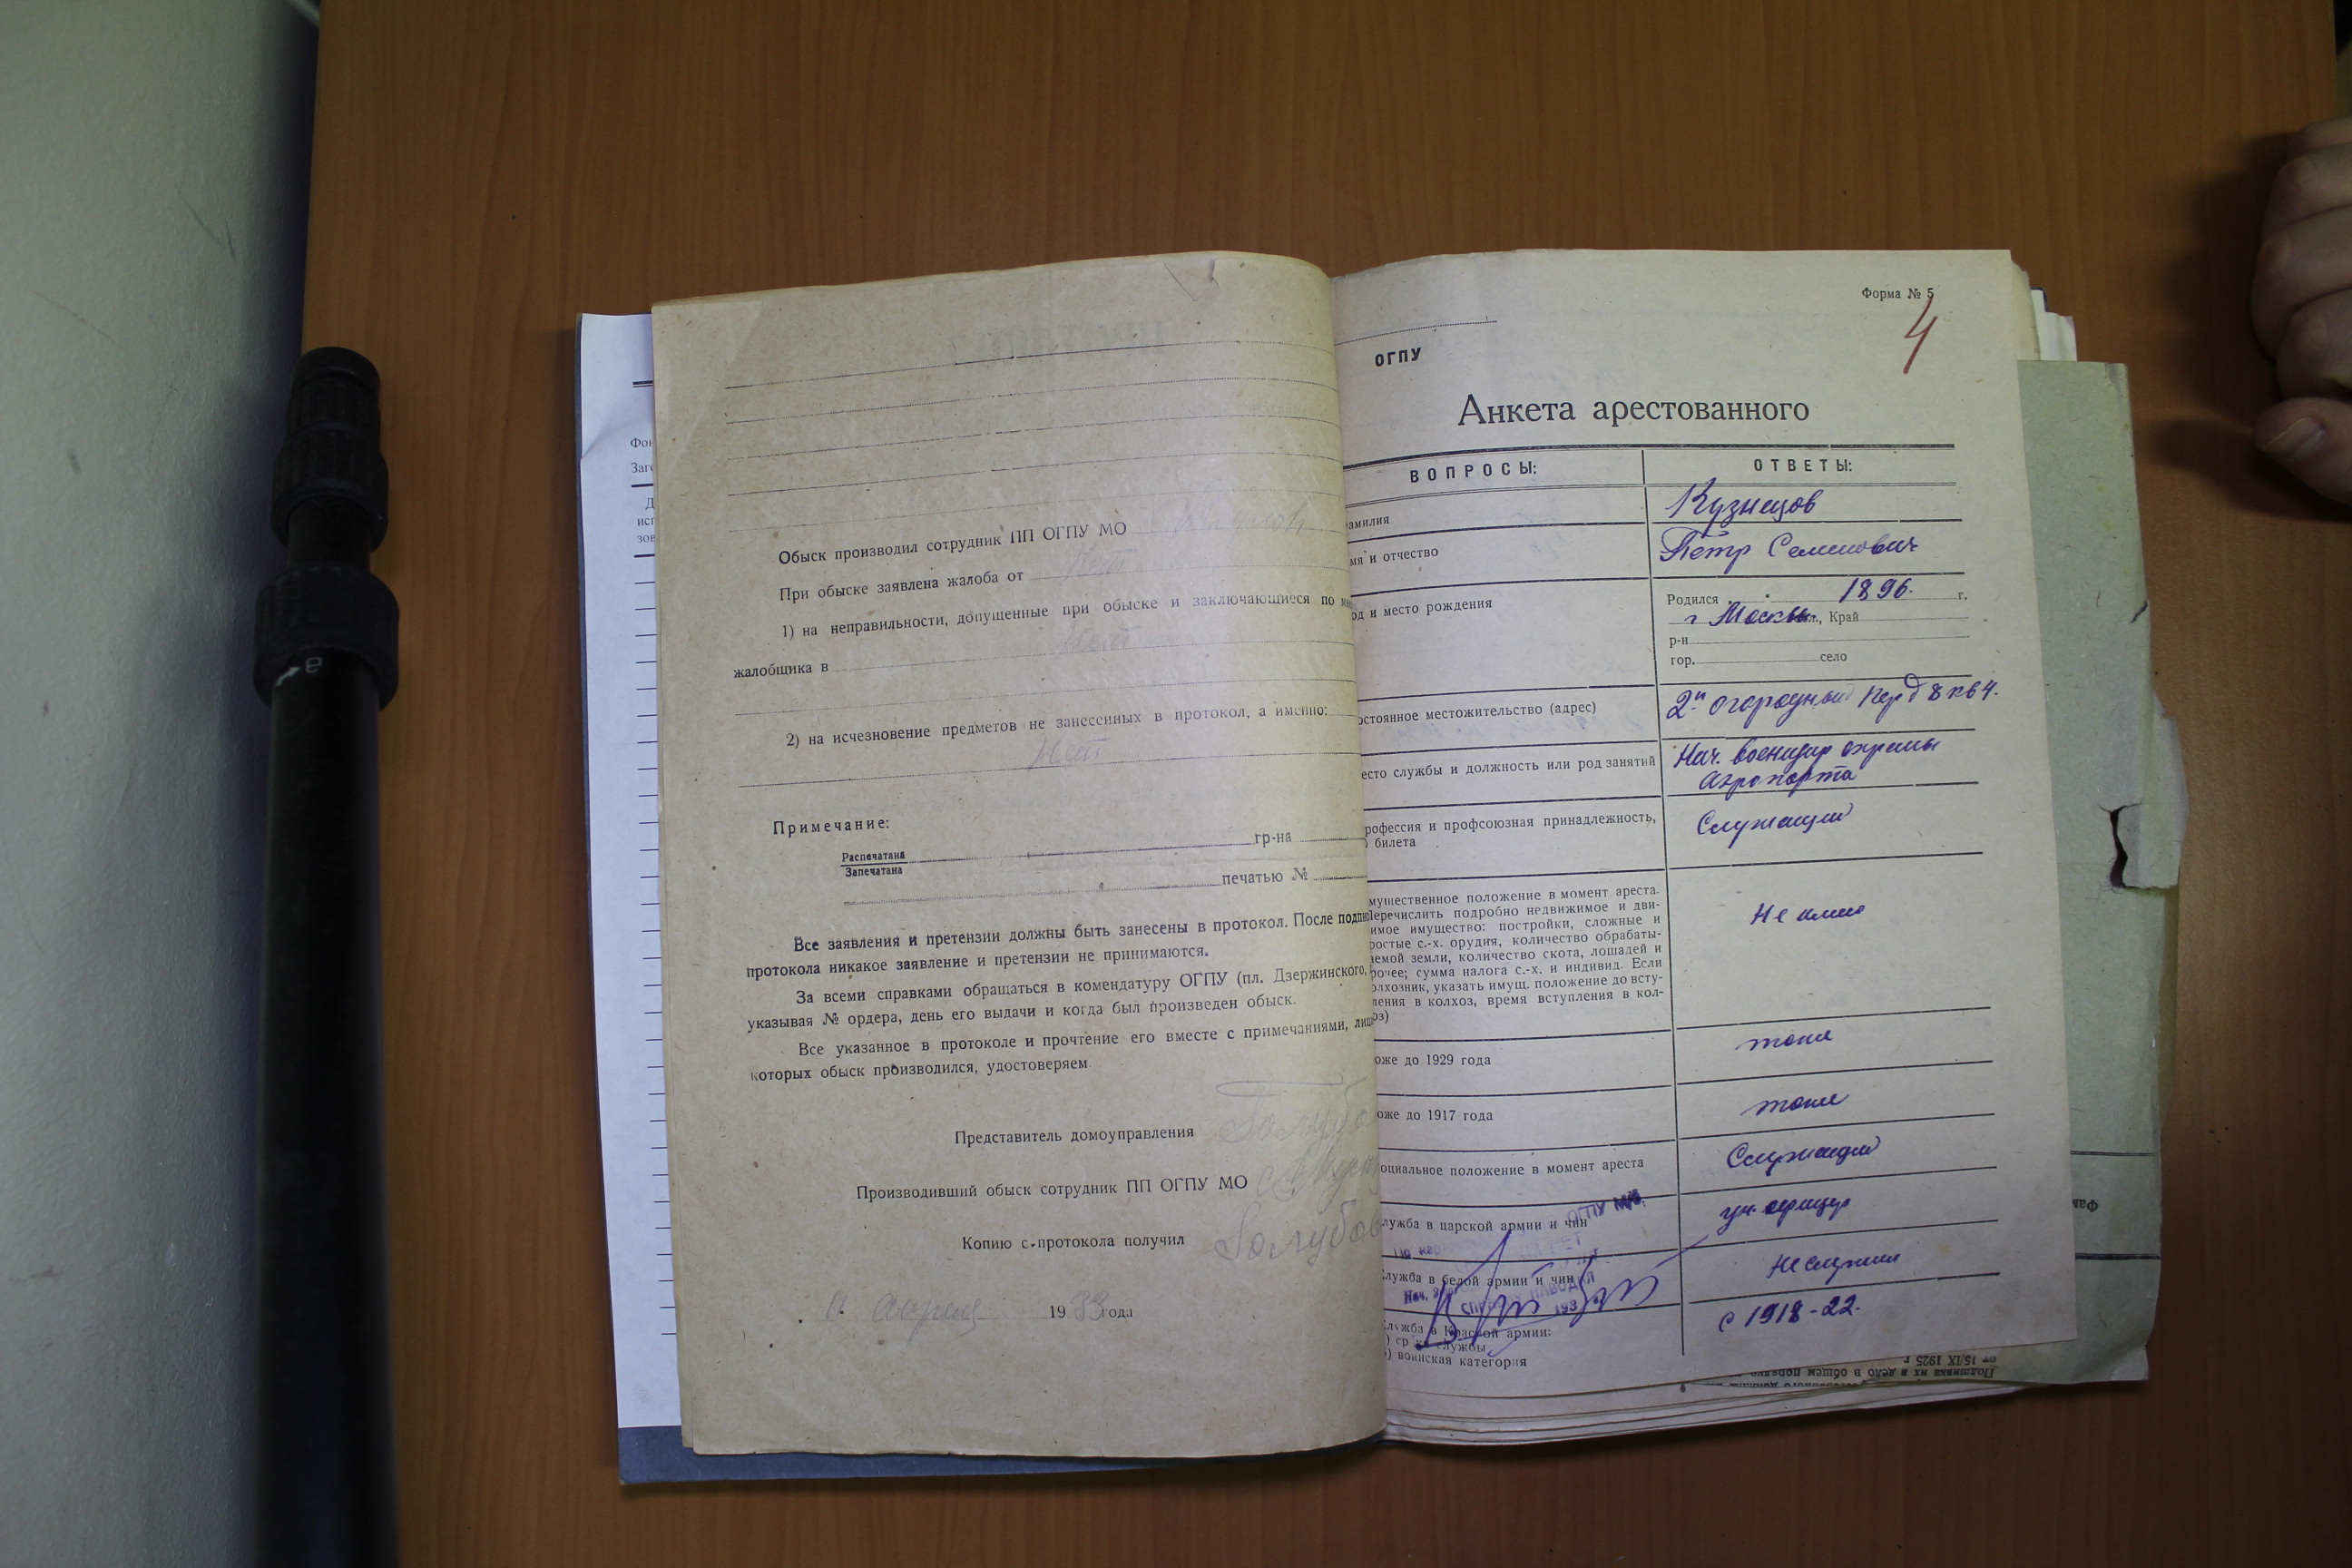 Обыск производил сотрудник ПП ОГПУ МО
При обыске заявлена жалоба от нет
1) на неправильности, допущенные при обыске и заключающиеся по
жалобщика в нет
2) на исчезновение предметов не занесенных в протокол, а именно:
Нет
Примечание:
Распечатана
Запечатана
гр-на
печатью №
Все заявления и претензии должны быть занесены в протокол. После подпи
протокола никакое заявление и претензии не принимаются.
За всеми справками обращаться в комендатуру ОГПУ (пл. Дзержинского,
указывая № ордера, день его выдачи и когда был произведен обыск.
Все указанное в протоколе и прочтение его вместе с примечаниями, лиц
которых обыск производился, удостоверяем.
Представитель домоуправления Голубо
Производивший обыск сотрудник ПП ОГПУ МО
Копию с протокола получил Голубов
апреля 1933 года
Форма № 5
4
ОГПУ
Анкета арестованного
ВОПРОСЫ: ОТВЕТЫ:
амилия Кузнецов
мя и отчество Петр Семенович
од и место рождения Родился 1896. г.
г Москвы л., Край
р-н
гор. село
остоянное местожительство (адрес) 2й огородный пер д 8 кв 4.
есто службы и должность или род занятий Нач. военизир охраны
Аэропорта
рофессия и профсоюзная принадлежность, Служащий
билета
мущественное положение в момент ареста.
Перечислить подробно недвижимое и дви-
имое имущество: постройки, сложные и
ростые с.-х. орудия, количество обрабаты-
аемой земли, количество скота, лошадей и
рочее; сумма налога с.-х. и индивид. Если
олхозник, указать имущ. положение до всту-
ления в колхоз, время вступления в кол-
оз)
Не имею
оже до 1929 года тоже
оже до 1917 года тоже
оциальное положение в момент ареста Служащий
лужба в царской армии и чин ун. офицер
ОГПУ М/О.
Служба в белой армии и чин Не служил
Служба в Красной армии: с 1918-22.
) ср ки службы
) воинская категория
Подшивка их в дело в общем порядке
от 15/IX 1925 г
Фам